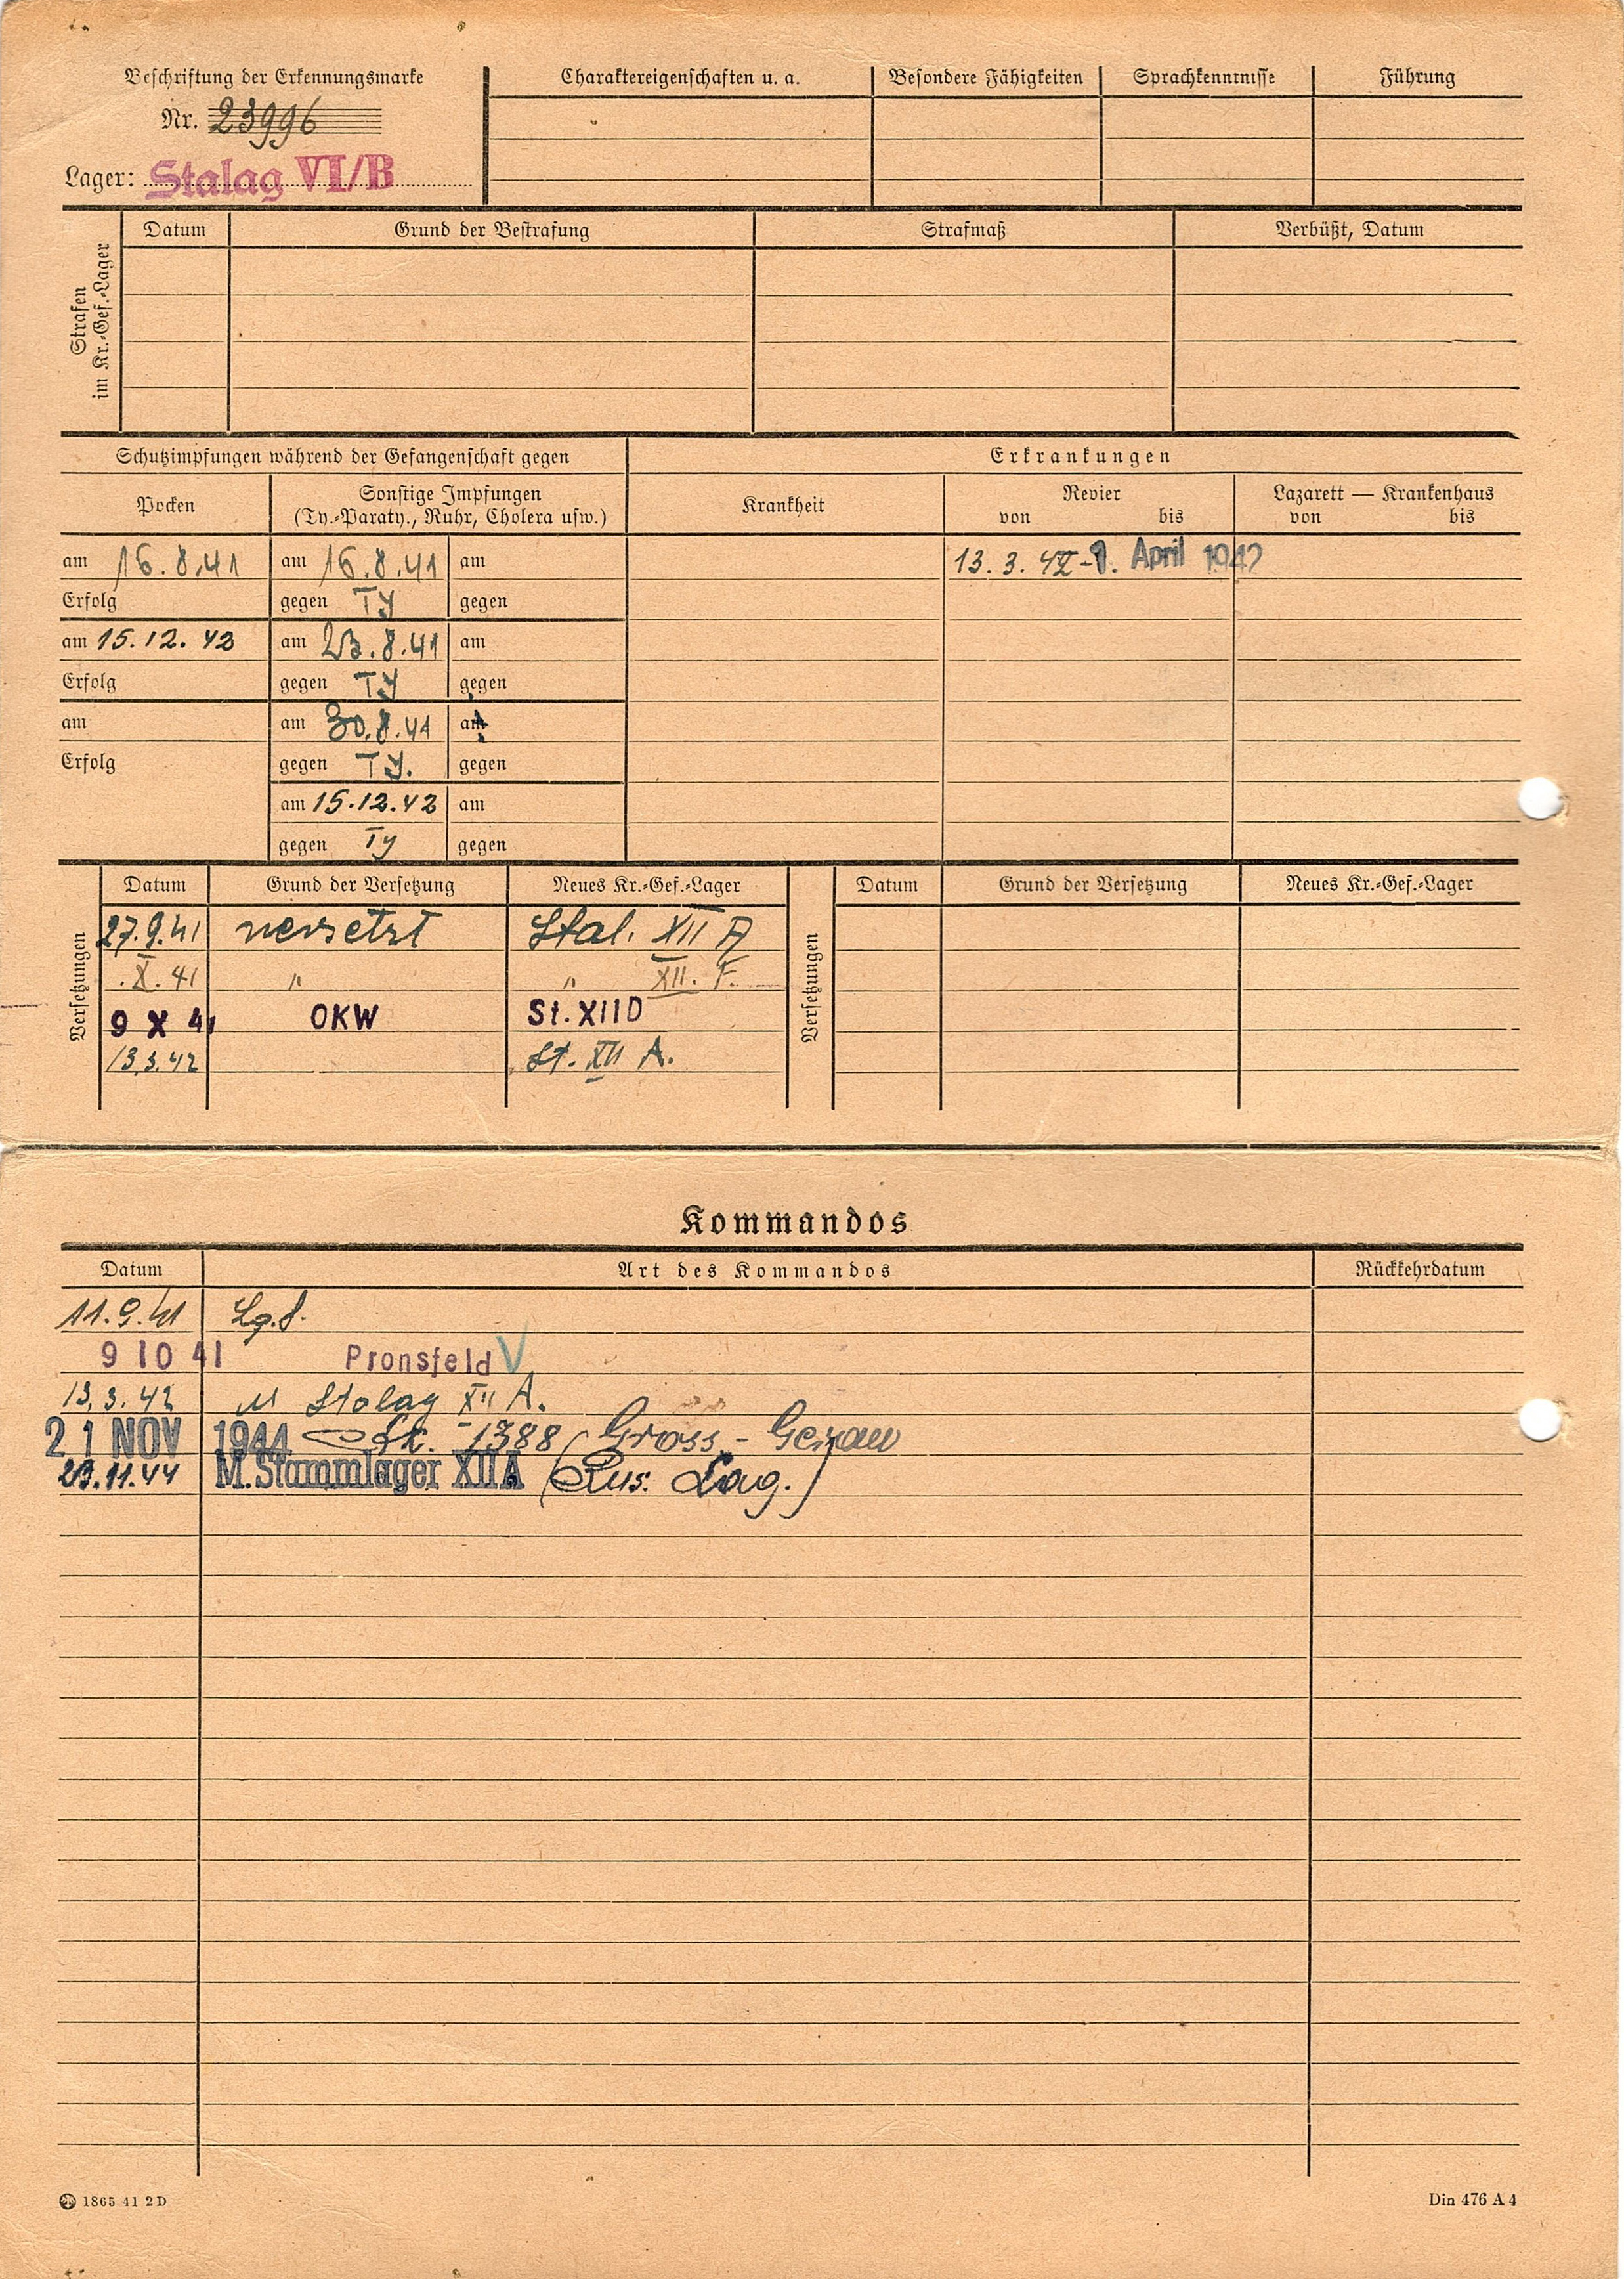 Beschriftung der Erkennungsmarke
Nr. 23996
Lager: Stalag VI/B
Charaktereigenschaften u. a.
Besondere Fähigkeiten
Sprachkenntnisse
Führung
Strafen
im Kr.-Gef.-Lager
Datum
Grund der Bestrafung
Strafmaß
Verbüßt, Datum
Schutzimpfungen während der Gefangenschaft gegen
Erkrankungen
Pocken
Sonstige Impfungen
(Ty.-Paraty., Ruhr, Cholera usw.)
Krankheit
Revier
von bis
Lazarett — Krankenhaus
von bis
am 16.8.41 am 16.8.41 am
13.3.42 - April 1942
Erfolg gegen Ty gegen
am 15.12.42 am 23.8.41 am
Erfolg gegen Ty gegen
am am 30.8.41 am
Erfolg gegen Ty. gegen
am 15.12.42 am
gegen Ty gegen
Versetzungen
Datum Grund der Versetzung Neues Kr.-Gef.-Lager
27.9.41 versetzt Stal. XII A
.X.41 " " XII. F.
9 X 41 OKW St. XII D
13.3.42 St. XII A.
Versetzungen
Datum Grund der Versetzung Neues Kr.-Gef.-Lager
Kommandos
Datum Art des Kommandos Rückkehrdatum
11.9.41
9 10 41 Pronsfeld V
13.3.42 Stalag XII A.
21 NOV 1944 1388 Gross-Gerau
23.11.44 M. Stammlager XII A (Rus. Lag.)
1865 41 2 D
Din 476 A 4